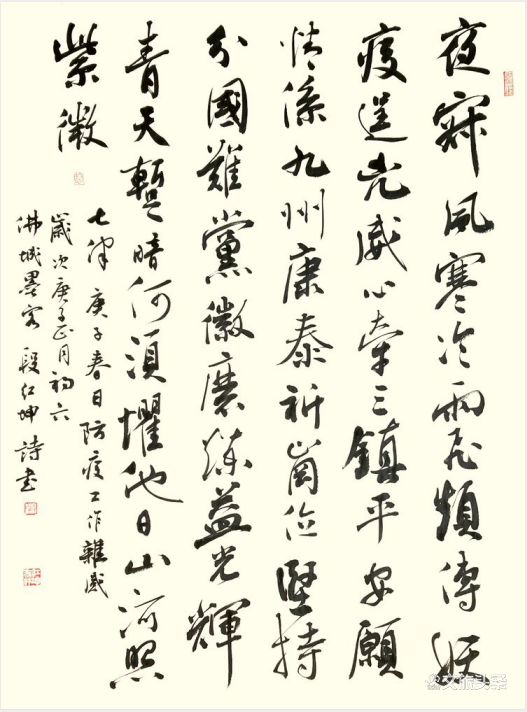 夜寂風寒冷雨飛頻傳妖
疫逞兇威心牽三鎮平安願
情係九州康泰祈崗位堅持
分國難黨徽磨練益光輝
青天暫暗何須懼他日山河照
紫微
七律 庚子春日防疫工作雜感
歲次庚子正月初六
佛城墨客 段红坤 詩書
文旅头条